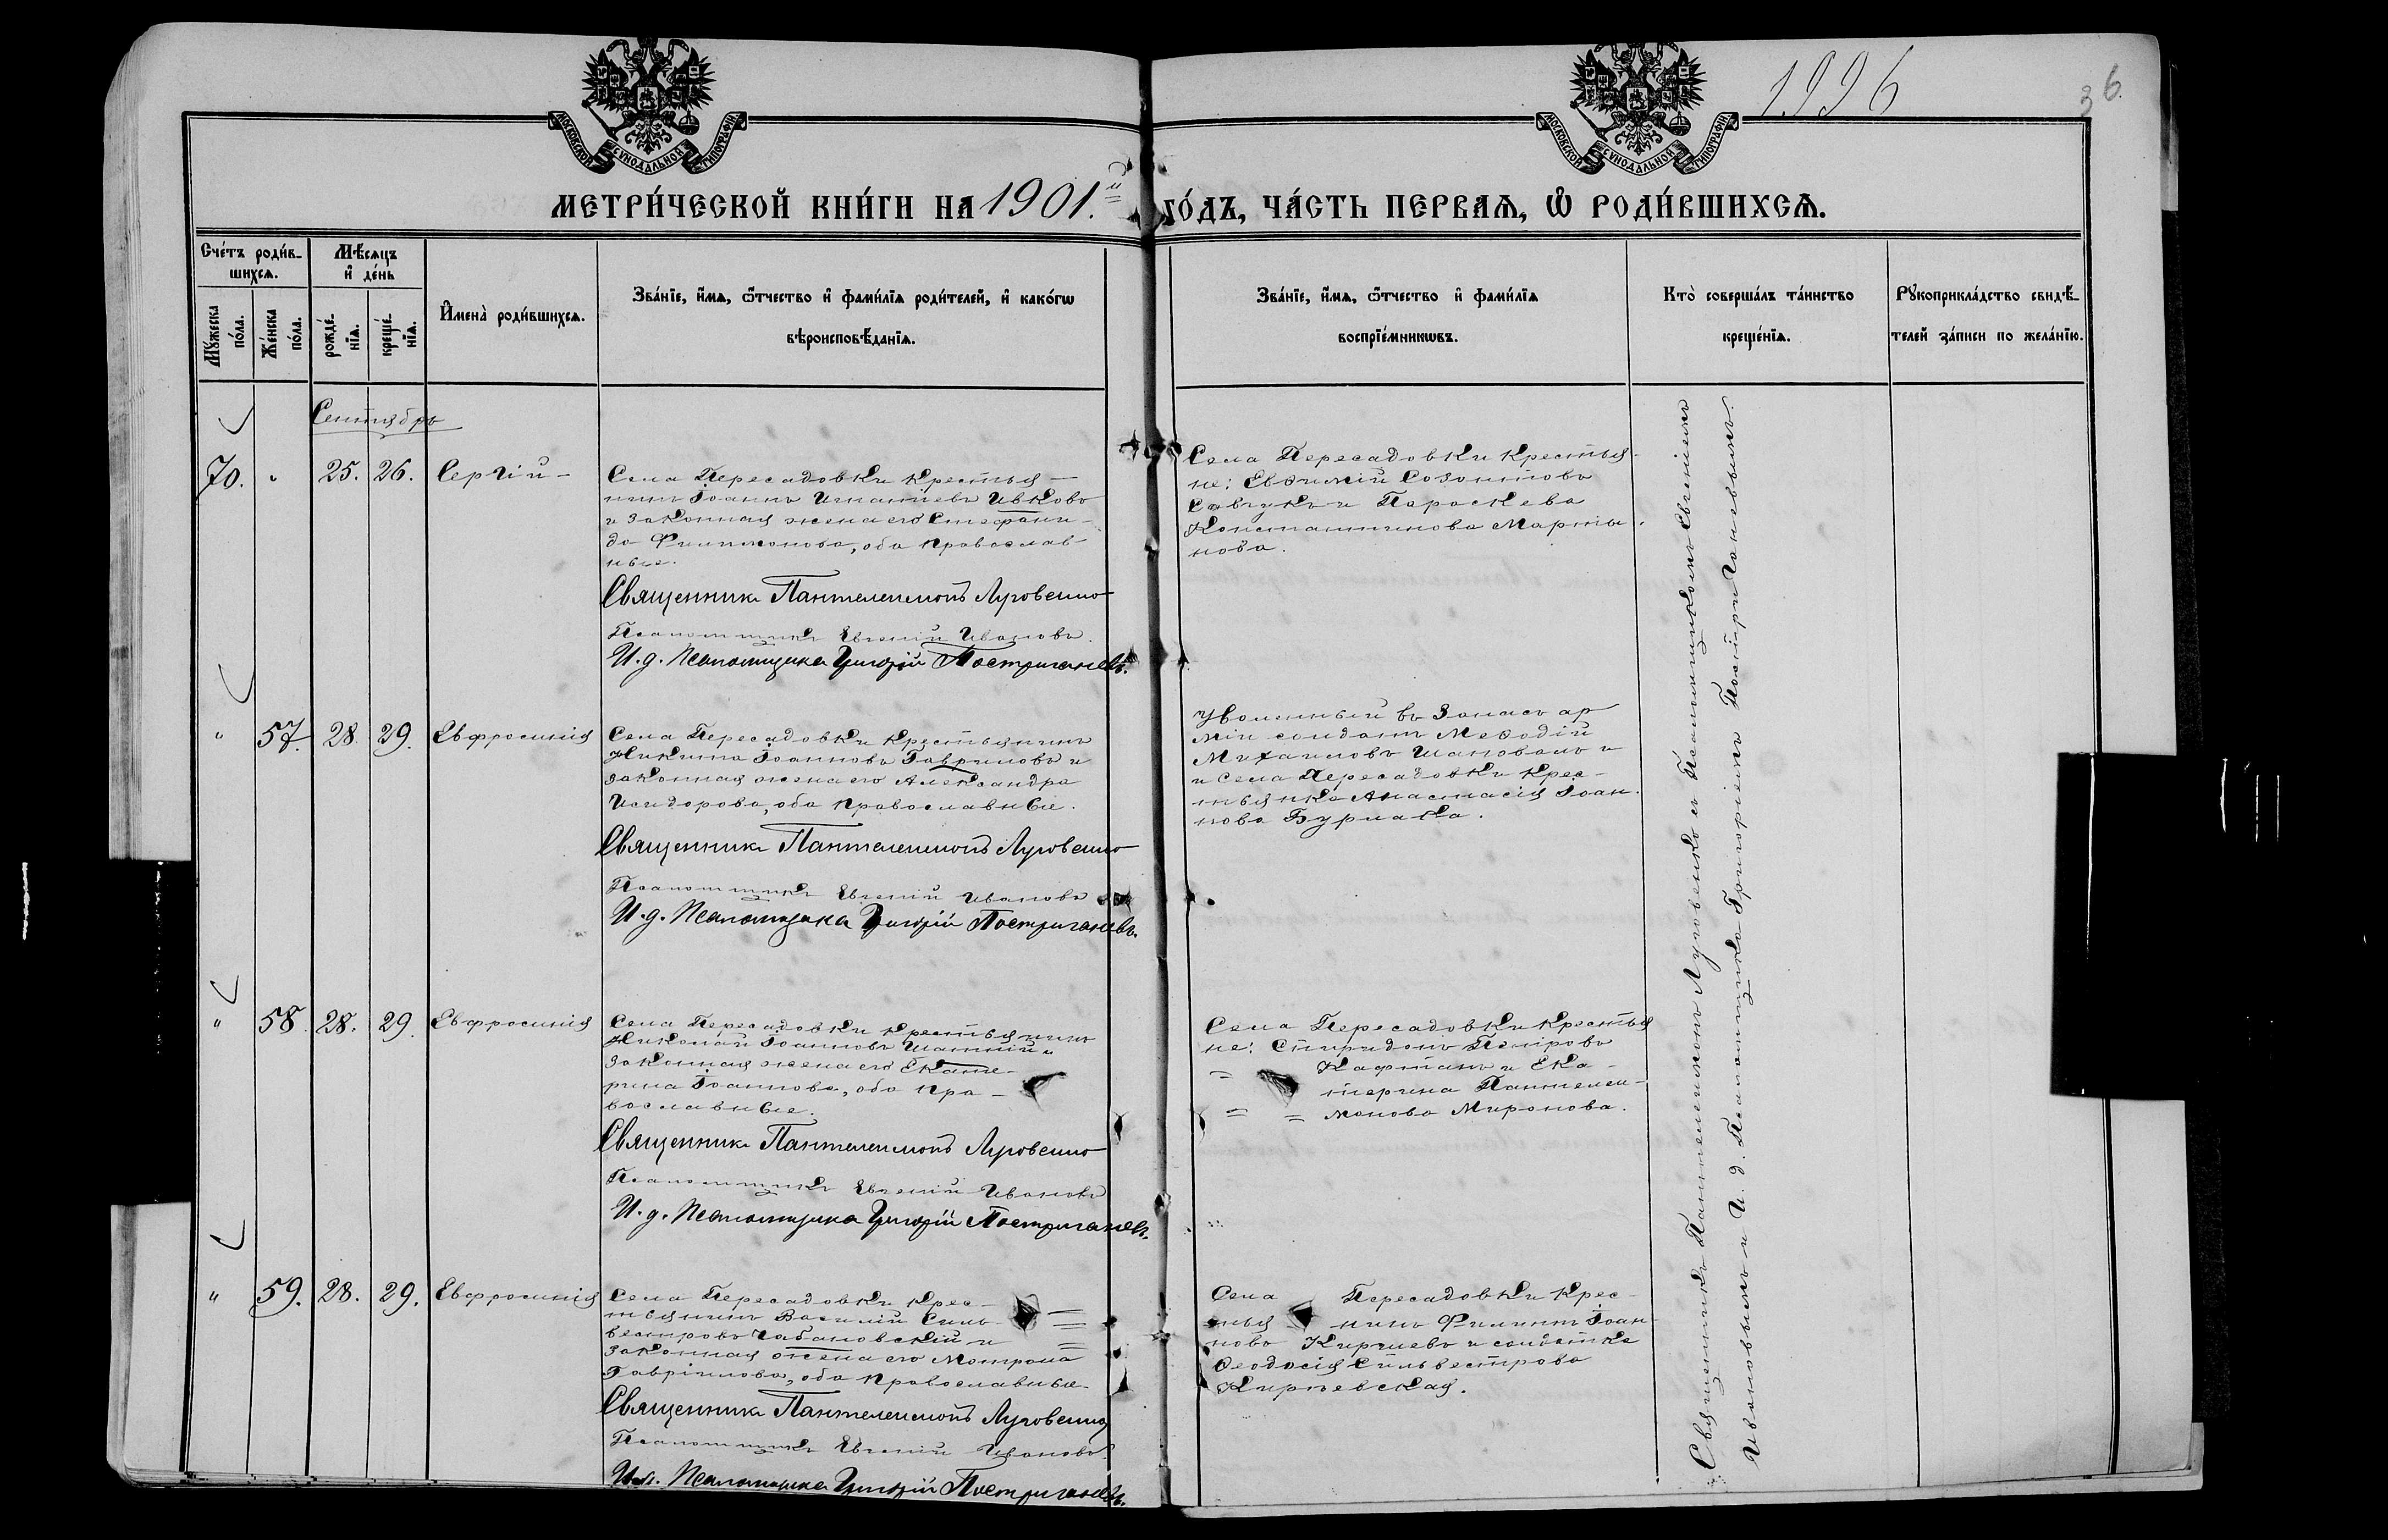 МОСКОВСКОЙ СѴНОДАЛЬНОЙ ТИПОГРАФІИ
МОСКОВСКОЙ СѴНОДАЛЬНОЙ ТИПОГРАФІИ
1996
36.
МЕТРИ́ЧЕСКОЙ КНИ́ГИ НА 1901.й ГО́ДЪ, ЧА́СТЬ ПЕРВАѦ, Ѡ РОДИ́ВШИХСѦ.
Сче́тъ роди́в-
шихсѧ.
Мꙋ́жеска по́ла.
Же́нска по́ла.
Мѣ́сѧцъ
и҆ де́нь
рожде́-
нїѧ.
креще́-
нїѧ.
И҆мена̀ роди́вшихсѧ.
Зва́нїе, и҆́мѧ, ѻ҆́тчество и҆ фами́лїѧ роди́телей, и҆ како́гѡ
вѣроисповѣ́данїѧ.
Зва́нїе, и҆́мѧ, ѻ҆́тчество и҆ фами́лїѧ
воспрїе́мникѡвъ.
Кто̀ соверша́лъ та́инство
креще́нїѧ.
Рꙋкоприкла́дство свидѣ́-
телей за́писи по жела́нїю.
Сентябрь
70. " 25. 26. Сергій -
Села Пересадовки крестья-
нинъ Іоаннъ Игнатіевъ Ивковъ
и законная жена его Стефани-
да Филимонова, оба православ-
ные.
Священникъ Пантелеимонъ Луговенко
Псаломщикъ Евгеній Ивановъ.
И. д. Псаломщика Григорій Постригачевъ.
Села Пересадовки крестья-
не: Евѳимій Созонтовъ
Савчукъ и Параскева
Константинова Марты-
нова.
" 57. 28 29. Евфросинія
Села Пересадовки крестьянинъ
Никита Іоанновъ Гавриловъ и
законная жена его Александра
Исидорова, оба православные.
Священникъ Пантелеимонъ Луговенко
Псаломщикъ Евгеній Ивановъ
И. д. Псаломщика Григорій Постригачевъ.
Уволенный въ Запасъ ар
міи солдатъ Меѳодій
Михаиловъ Шаповалъ и
и села Пересадовки крес-
тьянка Анастасія Іоан-
нова Бурлака.
" 58. 28. 29. Евфросинія
Села Пересадовки крестьянинъ
Николай Іоанновъ и
законная жена его Екате-
рина Іоаннова, оба пра-
вославные.
Священникъ Пантелеимонъ Луговенко
Псаломщикъ Евгеній Ивановъ
И. д. Псаломщика Григорій Постригачевъ.
Села Пересадовки крестья
не: Спиридонъ Петровъ
= Кафтанъ и Ека-
терина Пантелеи-
= = монова Миронова.
" 59. 28. 29. Евфросинія
Села Пересадовки крес-
тьянинъ Василій Силь-
вестровъ Чабановскій и
законная жена его Матрона
Гавріилова, оба православные.
Священникъ Пантелеимонъ Луговенко
Псаломщикъ Евгеній Ивановъ.
И. д. Псаломщика Григорій Постригачевъ.
Села Пересадовки крес-
тьянинъ Филиппъ Іоан-
новъ Киріевъ и солдатка
Ѳеодосія Сильвестрова
Священникъ Пантелеимонъ Луговенко съ Псаломщикомъ Евгеніемъ
Ивановымъ и И. д. Псаломщика Григоріемъ Постригачевымъ.